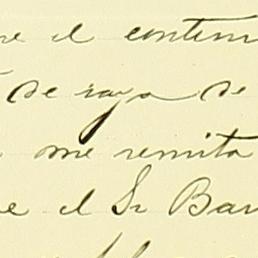 el contin
de raya de
me remita
e el Sr Bar